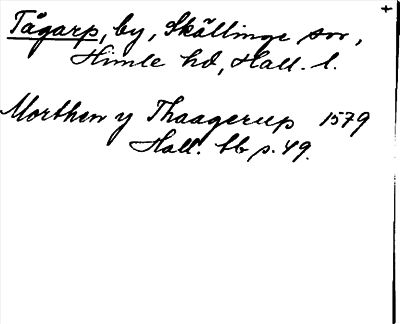 Tågarp, by, Skällinge sn,
Himle hd, Hall. l.
Morthen y Thaagerup 1579
Hall. bb p. 49.